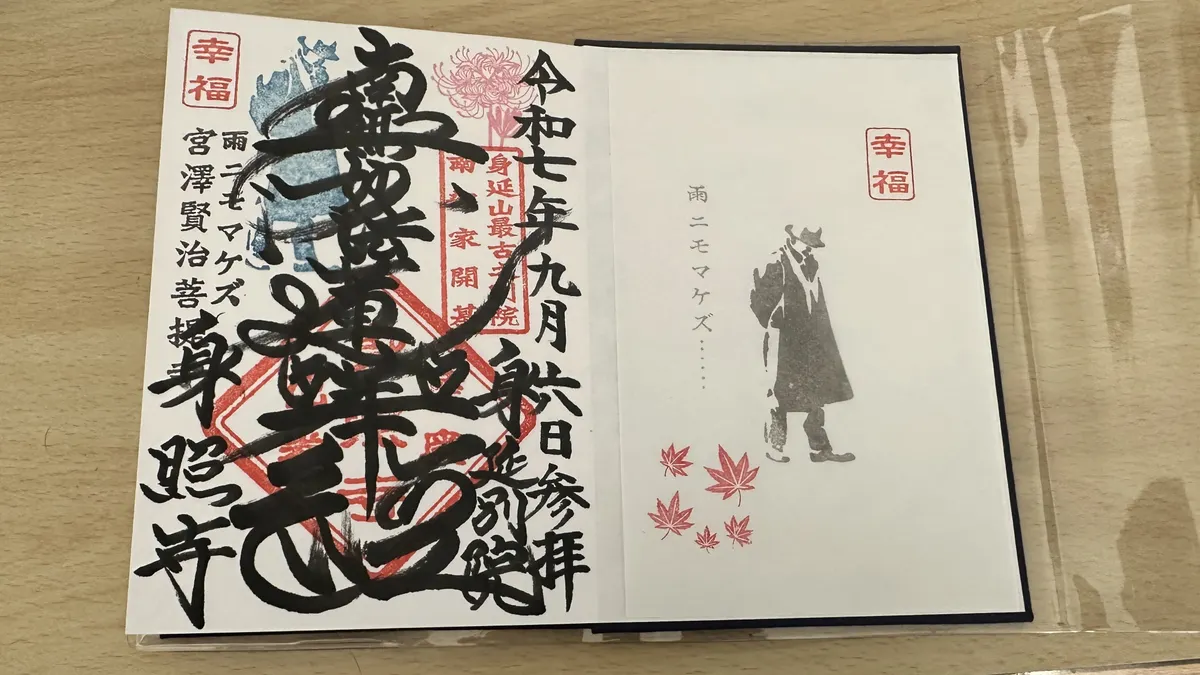 幸福
雨ニモマケズ……
令和七年九月六日参拝
身延別院
身延山最古
南部家開基
南無妙法蓮華経
雨ニモマケズ
宮澤賢治菩提寺
身照寺
幸福